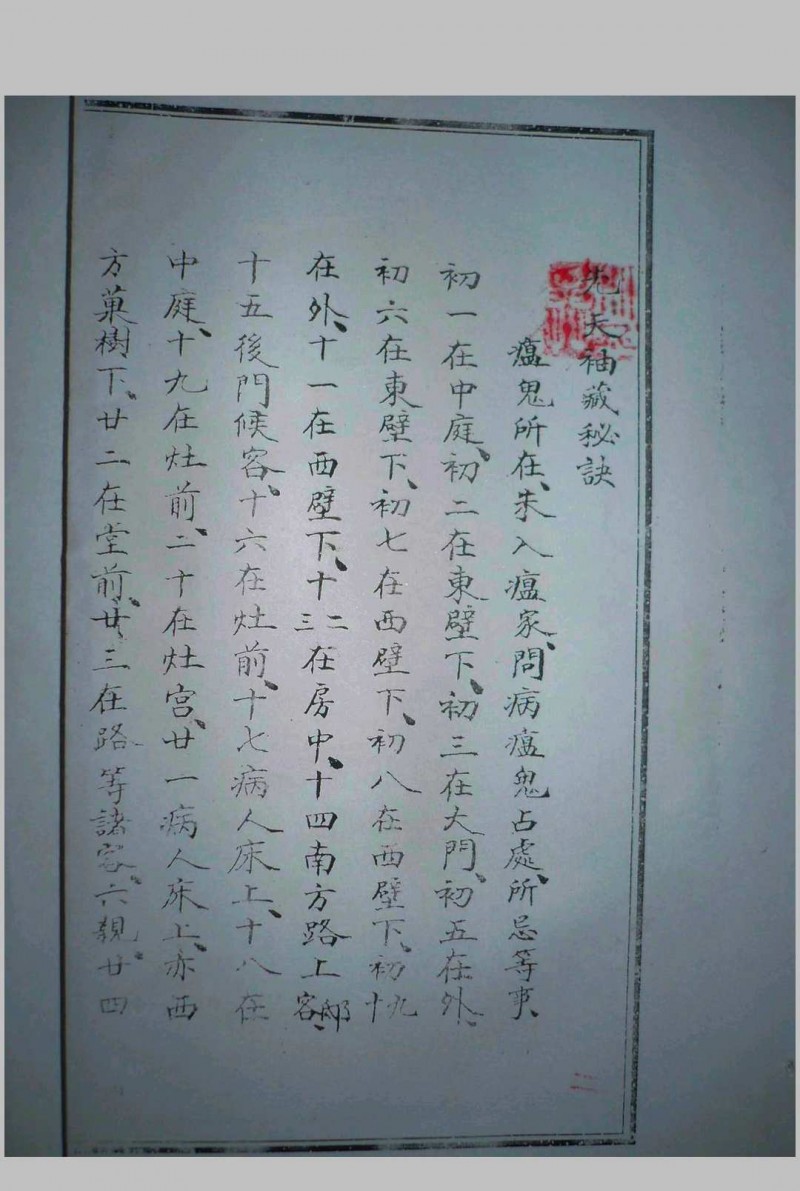 先天袖藏秘訣
瘟鬼所在、未入瘟家、問病瘟鬼占處、所忌等事、
初一在中庭、初二在東壁下、初三在大門、初五在外、
初六在東壁下、初七在西壁下、初八在西壁下、初九十
在外、十一在西壁下、十二三在房中、十四南方路上邸客、
十五後門候客、十六在灶前、十七病人床上、十八在
中庭、十九在灶前、二十在灶宫、廿一病人床上、亦西
方菓樹下、廿二在堂前、廿三在路等諸客、六親、廿四
二